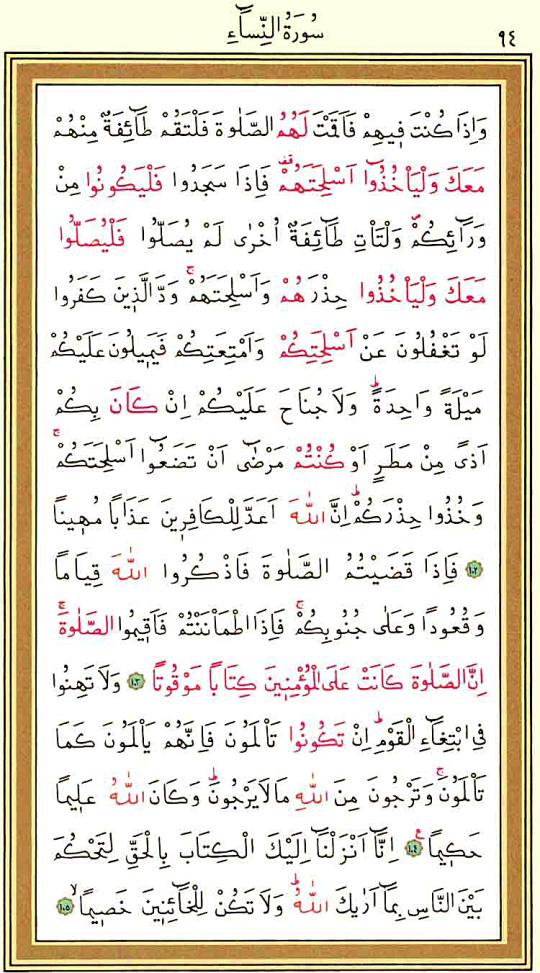 ٩٤
سُورَةُ النِّسَٓاءِ
وَاِذَا كُنْتَ ف۪يهِمْ فَاَقَمْتَ لَهُمُ الصَّلٰوةَ فَلْتَقُمْ طَٓائِفَةٌ مِنْهُمْ
مَعَكَ وَلْيَأْخُذُٓوا اَسْلِحَتَهُمْ۠ فَاِذَا سَجَدُوا فَلْيَكُونُوا مِنْ
وَرَٓائِكُمْۖ وَلْتَأْتِ طَٓائِفَةٌ اُخْرٰى لَمْ يُصَلُّوا فَلْيُصَلُّوا
مَعَكَ وَلْيَأْخُذُوا حِذْرَهُمْ وَاَسْلِحَتَهُمْۚ وَدَّ الَّذ۪ينَ كَفَرُوا
لَوْ تَغْفُلُونَ عَنْ اَسْلِحَتِكُمْ وَاَمْتِعَتِكُمْ فَيَم۪يلُونَ عَلَيْكُمْ
مَيْلَةً وَاحِدَةًۜ وَلَا جُنَاحَ عَلَيْكُمْ اِنْ كَانَ بِكُمْ
اَذًى مِنْ مَطَرٍ اَوْ كُنْتُمْ مَرْضٰٓى اَنْ تَضَعُٓوا اَسْلِحَتَكُمْۚ
وَخُذُوا حِذْرَكُمْۜ اِنَّ اللّٰهَ اَعَدَّ لِلْكَافِر۪ينَ عَذَابًا مُه۪ينًا
﴿١٠٢﴾ فَاِذَا قَضَيْتُمُ الصَّلٰوةَ فَاذْكُرُوا اللّٰهَ قِيَامًا
وَقُعُودًا وَعَلٰى جُنُوبِكُمْۚ فَاِذَا اطْمَأْنَنْتُمْ فَاَق۪يمُوا الصَّلٰوةَۚ
اِنَّ الصَّلٰوةَ كَانَتْ عَلَى الْمُؤْمِن۪ينَ كِتَابًا مَوْقُوتًا ﴿١٠٣﴾ وَلَا تَهِنُوا
فِي ابْتِغَٓاءِ الْقَوْمِۜ اِنْ تَكُونُوا تَأْلَمُونَ فَاِنَّهُمْ يَأْلَمُونَ كَمَا
تَأْلَمُونَۚ وَتَرْجُونَ مِنَ اللّٰهِ مَا لَا يَرْجُونَۜ وَكَانَ اللّٰهُ عَل۪يمًا
حَك۪يمًا۟ ﴿١٠٤﴾ اِنَّٓا اَنْزَلْنَٓا اِلَيْكَ الْكِتَابَ بِالْحَقِّ لِتَحْكُمَ
بَيْنَ النَّاسِ بِمَٓا اَرٰيكَ اللّٰهُۜ وَلَا تَكُنْ لِلْخَٓائِن۪ينَ خَص۪يمًاۙ ﴿١٠٥﴾